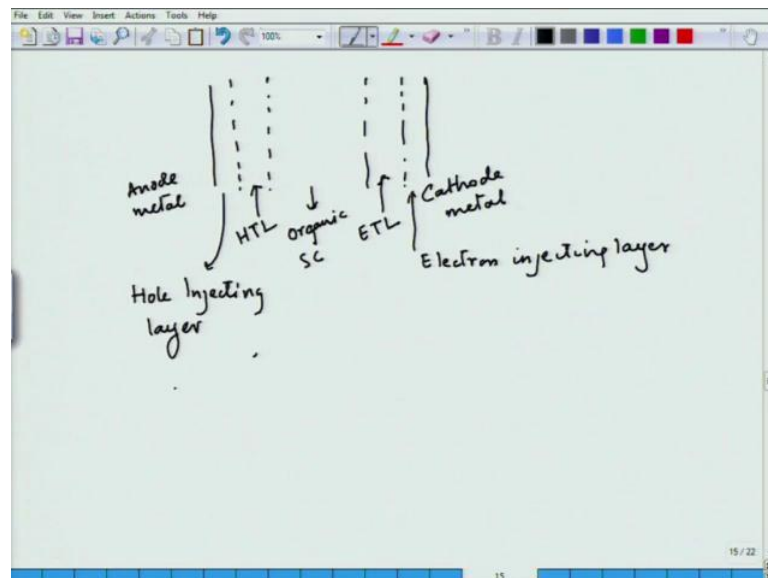 File Edit View Insert Actions Tools Help
100%
B I
Anode
metal
HTL
organic
SC
ETL
Cathode
metal
Hole Injecting
layer
Electron injecting layer
15 / 22
15